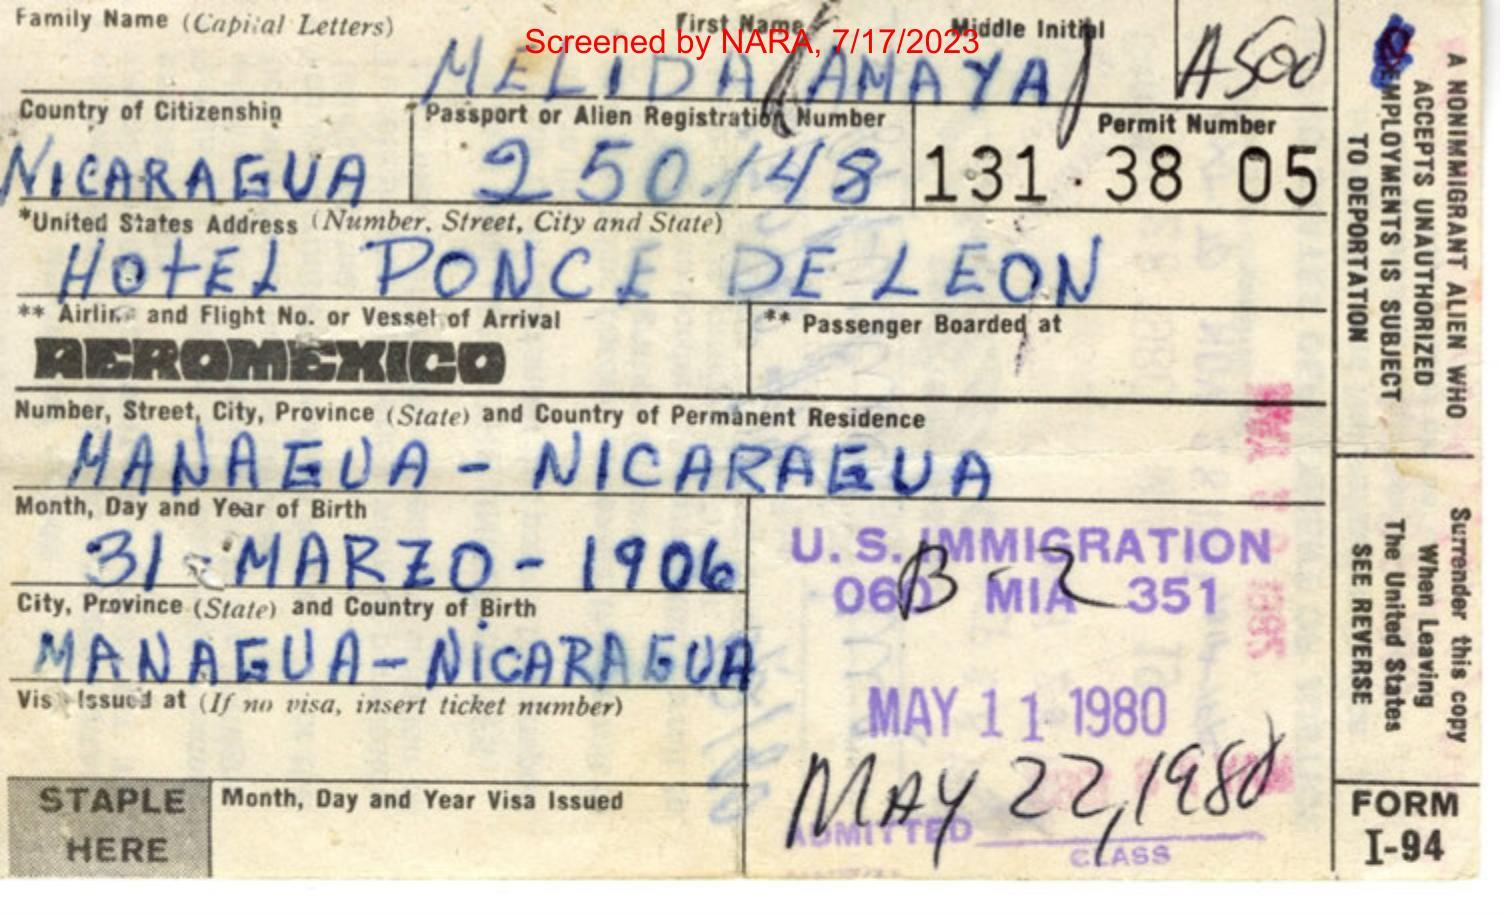 Family Name (Capital Letters) First Name Middle Initial
Screened by NARA, 7/17/2023
MELIDA (AMAYA) A500
Country of Citizenship Passport or Alien Registration Number Permit Number
NICARAGUA 250148 131 38 05
*United States Address (Number, Street, City and State)
HOTEL PONCE DE LEON
** Airline and Flight No. or Vessel of Arrival ** Passenger Boarded at
AEROMEXICO
Number, Street, City, Province (State) and Country of Permanent Residence
MANAGUA - NICARAGUA
Month, Day and Year of Birth
31 - MARZO - 1906
City, Province (State) and Country of Birth
MANAGUA - NICARAGUA
Visa Issued at (If no visa, insert ticket number)
STAPLE HERE
Month, Day and Year Visa Issued
U. S. IMMIGRATION
060 MIA 351
B-2
MAY 11 1980
MAY 22, 1980
ADMITTED
CLASS
A NONIMMIGRANT ALIEN WHO
ACCEPTS UNAUTHORIZED
EMPLOYMENTS IS SUBJECT
TO DEPORTATION
Surrender this copy
When Leaving
The United States
SEE REVERSE
FORM
I-94